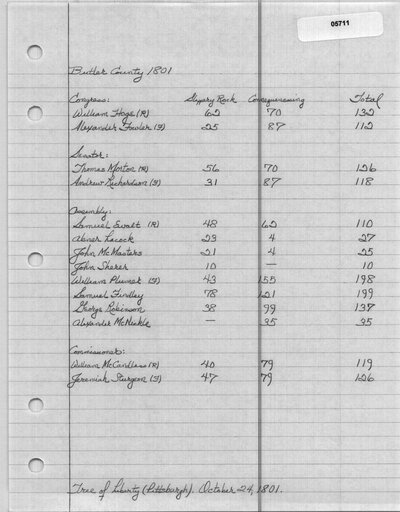 05711
Butler County 1801
Congress: Slippery Rock Conequenessing Total
William Hoge (R) 62 70 132
Alexander Fowler (F) 25 87 112
Senator:
Thomas Morton (R) 56 70 126
Andrew Richardson (F) 31 87 118
Assembly:
Samuel Ewalt (R) 48 62 110
Abner Lacock 23 4 27
John McMasters 21 4 25
John Sherer 10 — 10
William Plumer (F) 43 155 198
Samuel Findley 78 121 199
George Robinson 38 99 137
Alexander McNickle — 35 35
Commissioner:
William McCandless (R) 40 79 119
Jeremiah Sturgeon (F) 47 79 126
Tree of Liberty (Pittsburgh). October 24, 1801.